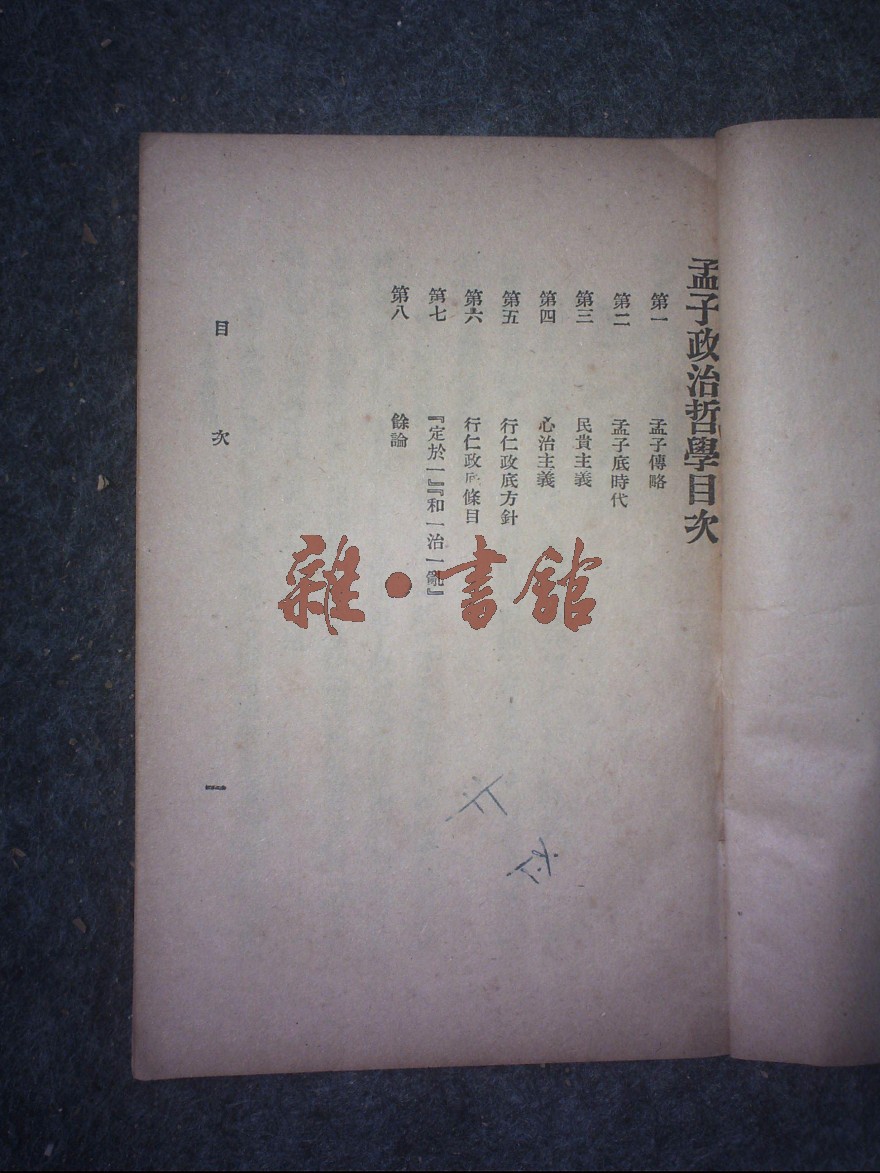 孟子政治哲學目次
第一 孟子傳略
第二 孟子底時代
第三 民貴主義
第四 心治主義
第五 行仁政底方針
第六 行仁政底條目
第七 『定於一』『和一治一亂』
第八 餘論
目次 一
雜·書館